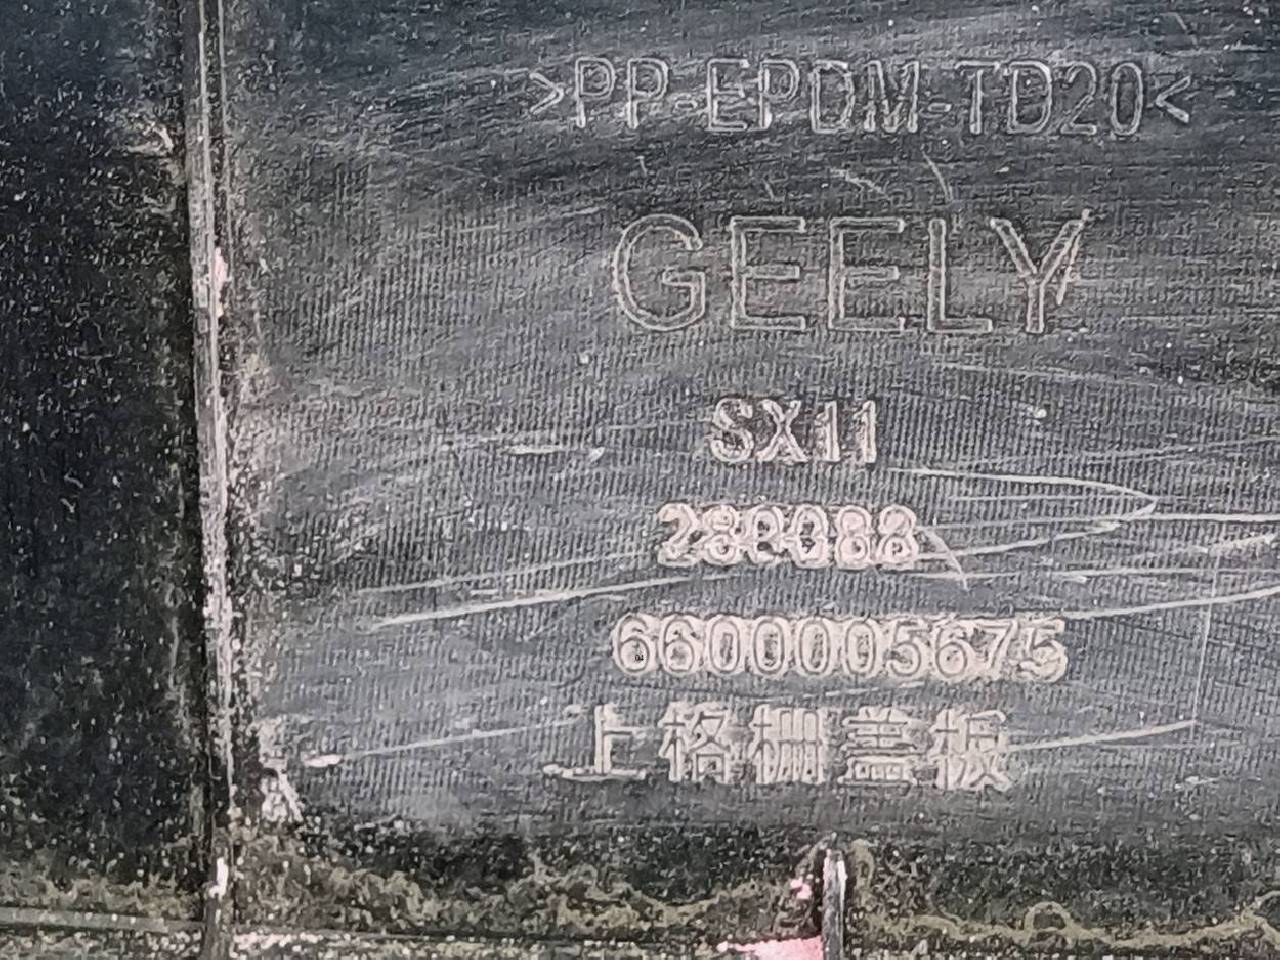 >PP-EPDM-TD20<
GEELY
SX11
288088
6600005675
上格栅盖板